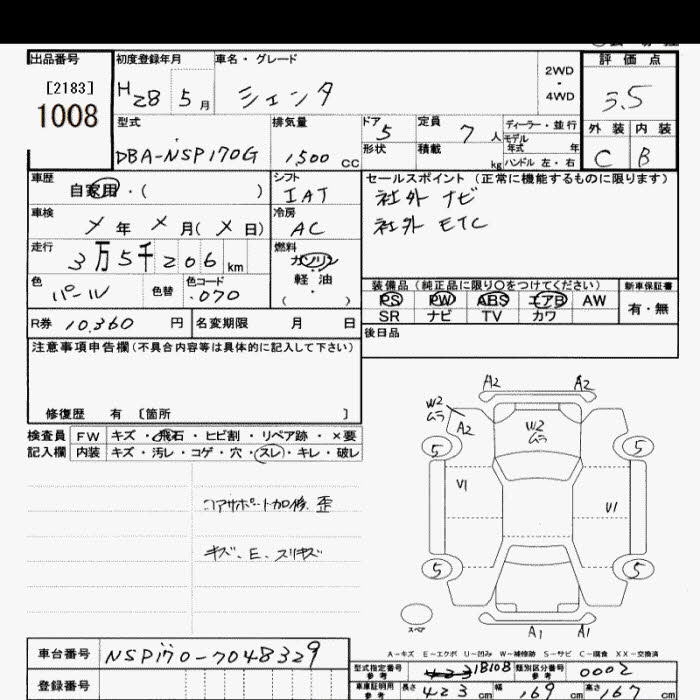 出品番号 初度登録年月 車名・グレード 評価点
[2183] H28 5月 シエンタ 2WD・4WD 3.5
1008
型式 排気量 ドア 5 定員 7人 ディーラー・並行 外装 内装
DBA-NSP170G 1,500 cc 形状 積載 kg モデル年式 年 C B
ハンドル 左・右
車歴 シフト セールスポイント (正常に機能するものに限ります)
自家用・( ) IAT 社外 ナビ
車検 冷房 社外 ETC
メ年 メ月(メ日) AC
走行 燃料
3万5千206km ガソリン
軽油
( )
色 色替 色コード 装備品(純正品に限り○をつけてください) 新車保証書
パール .070 PS PW ABS エアB AW 有・無
SR ナビ TV カワ
R券 10,360 円 名変期限 月 日 後日品
注意事項申告欄(不具合内容等は具体的に記入して下さい)
修復歴 有 〔箇所 〕
検査員 FW キズ・飛石・ヒビ割・リペア跡・×要
記入欄 内装 キズ・汚レ・コゲ・穴・スレ・キレ・破レ
コアサポート加修、歪
キズ、E、スリキズ
A2 A2
W2
ムラ
A2
W2
ムラ
5 5
V1 U1
5 5
スペア
A1 A1
A-キズ E-エクボ U-凹み W-補修跡 S-サビ C-腐食 XX-交換済
車台番号 NSP170-7048329
登録番号
型式指定番号 参考 18108 類別区分番号 参考 0002
車庫証明用 参考 長さ 423 cm 幅 169 cm 高さ 167 cm